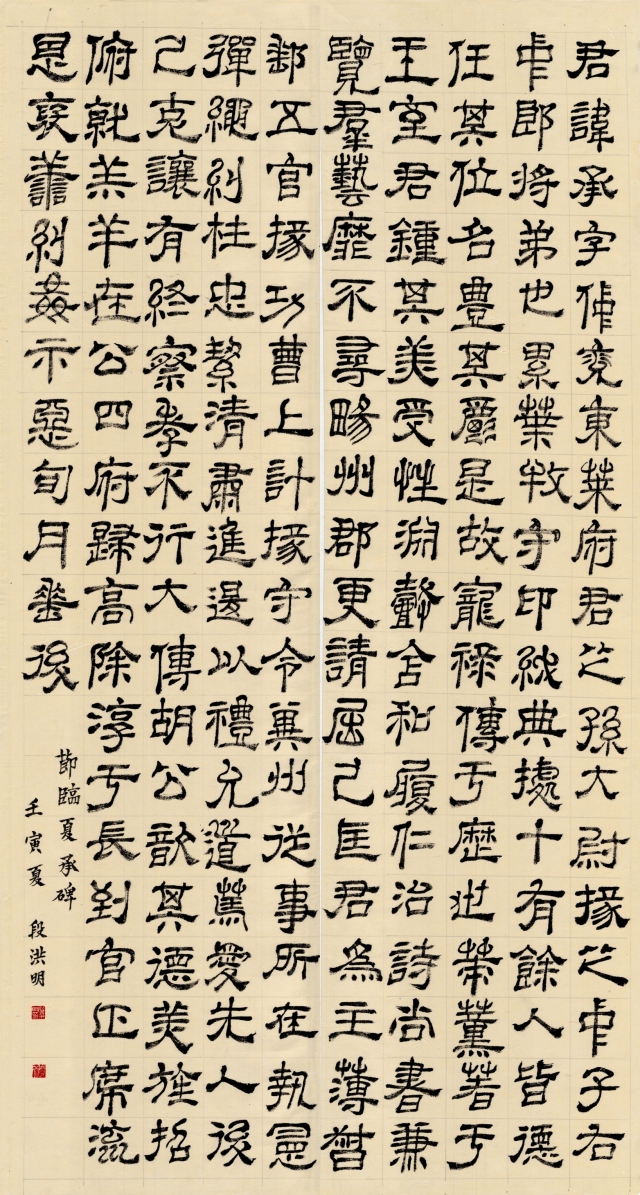 君諱承字仲兖東萊府君之孫大尉掾之中子右
中郎將弟也累葉牧守印紱典據十有餘人皆德
任其位名豐其爵是故寵祿傳于歷世策薰著于
王室君鍾其美受性淵懿含和履仁治詩尚書兼
覽羣藝靡不尋暢州郡更請屈己匡君為主薄督
郵五官掾功曹上計掾守令冀州從事所在執憲
彈繩糾枉忠絜清肅進退以禮允道篤愛先人後
己克讓有終察孝不行大傅胡公歆其德美旌招
俯就羔羊在公四府歸高除淳于長到官正席流
恩褒善糾姦示惡旬月後
節臨夏承碑
壬寅夏 段洪明